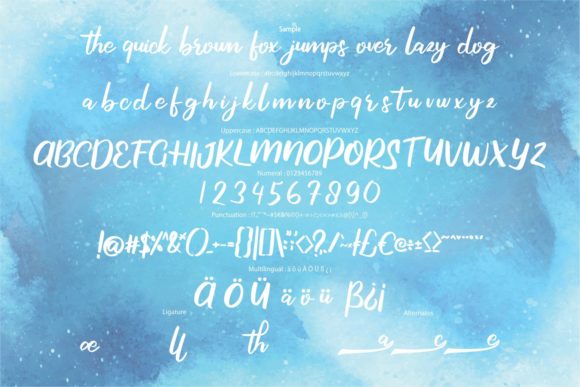 Sample
the quick brown fox jumps over lazy dog
Lowercase : abcdefghijklmnopqrstuvwxyz
abcdefghijklmnopqrstuvwxyz
Uppercase : ABCDEFGHIJKLMNOPQRSTUVWXYZ
ABCDEFGHIJKLMNOPQRSTUVWXYZ
Numeral : 0123456789
1234567890
Punctuation :
Multilingual : ä ö ü Ä Ö Ü ß ¿ ¡
ä ö ü ä ö ü ß¿i
Ligature Alternates
æ th a c e